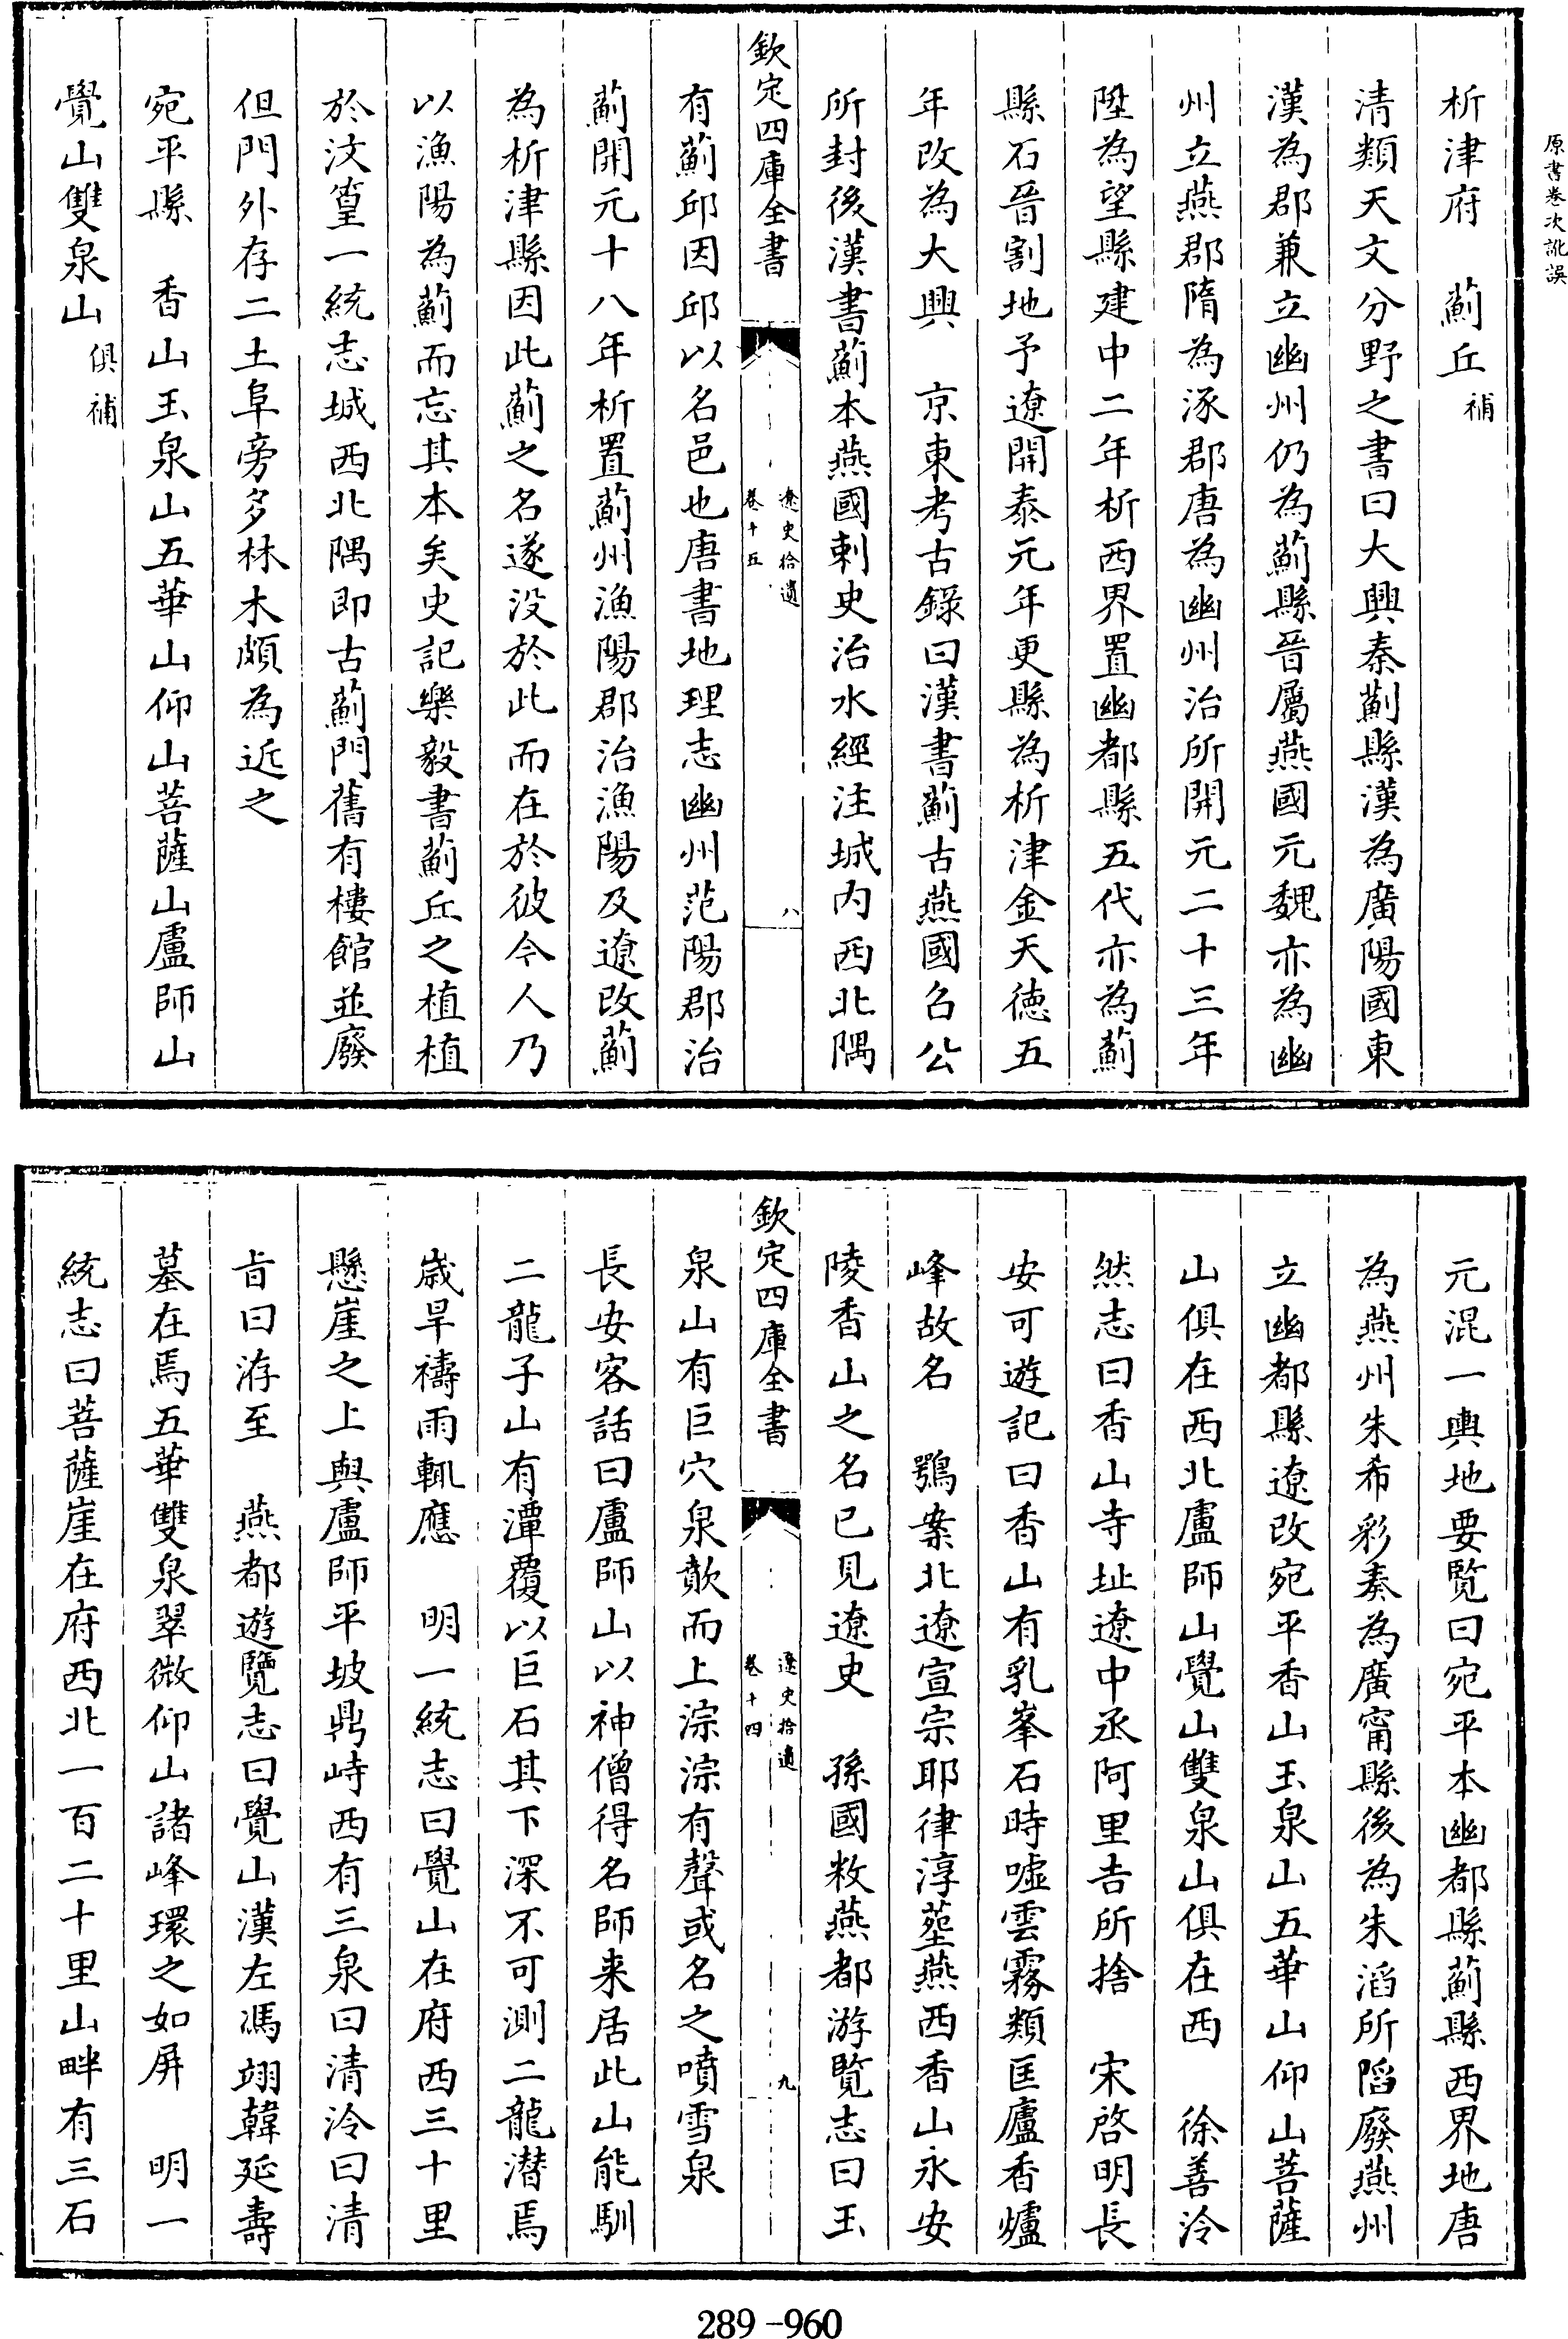 原書卷次訛誤
析津府　薊丘補
清類天文分野之書曰大興秦薊縣漢為廣陽國東
漢為郡兼立幽州仍為薊縣晉屬燕國元魏亦為幽
州立燕郡隋為涿郡唐為幽州治所開元二十三年
陞為望縣建中二年析西界置幽都縣五代亦為薊
縣石晉割地予遼開泰元年更縣為析津金天德五
年改為大興　京東考古錄曰漢書薊古燕國召公
所封後漢書薊本燕國剌史治水經注城内西北隅
欽定四庫全書
遼史拾遺
卷十五
八
有薊邱因邱以名邑也唐書地理志幽州范陽郡治
薊開元十八年析置薊州漁陽郡治漁陽及遼改薊
為析津縣因此薊之名遂没於此而在於彼今人乃
以漁陽為薊而忘其本矣史記樂毅書薊丘之植植
於汶篁一統志城西北隅即古薊門舊有樓館並廢
但門外存二土阜旁多林木頗為近之
宛平縣　香山玉泉山五華山仰山菩薩山盧師山
覺山雙泉山俱補
元混一輿地要覧曰宛平本幽都縣薊縣西界地唐
為燕州朱希彩奏為廣甯縣後為朱滔所䧟廢燕州
立幽都縣遼改宛平香山玉泉山五華山仰山菩薩
山俱在西北盧師山覺山雙泉山俱在西　徐善泠
然志曰香山寺址遼中丞阿里吉所捨　宋啓明長
安可遊記曰香山有乳峯石時噓雲霧類匡廬香爐
峰故名　鶚案北遼宣宗耶律淳塟燕西香山永安
陵香山之名已見遼史　孫國敉燕都游覧志曰玉
欽定四庫全書
遼史拾遺
卷十四
九
泉山有巨穴泉歕而上淙淙有聲或名之噴雪泉
長安客話曰盧師山以神僧得名師来居此山能馴
二龍子山有潭覆以巨石其下深不可測二龍潜焉
歳旱禱雨輒應　明一統志曰覺山在府西三十里
懸崖之上與盧師平坡鼎峙西有三泉曰清泠曰清
旨曰洊至　燕都遊覽志曰覺山漢左馮翊韓延壽
墓在焉五華雙泉翠微仰山諸峰環之如屏　明一
統志曰菩薩崖在府西北一百二十里山畔有三石
289-960